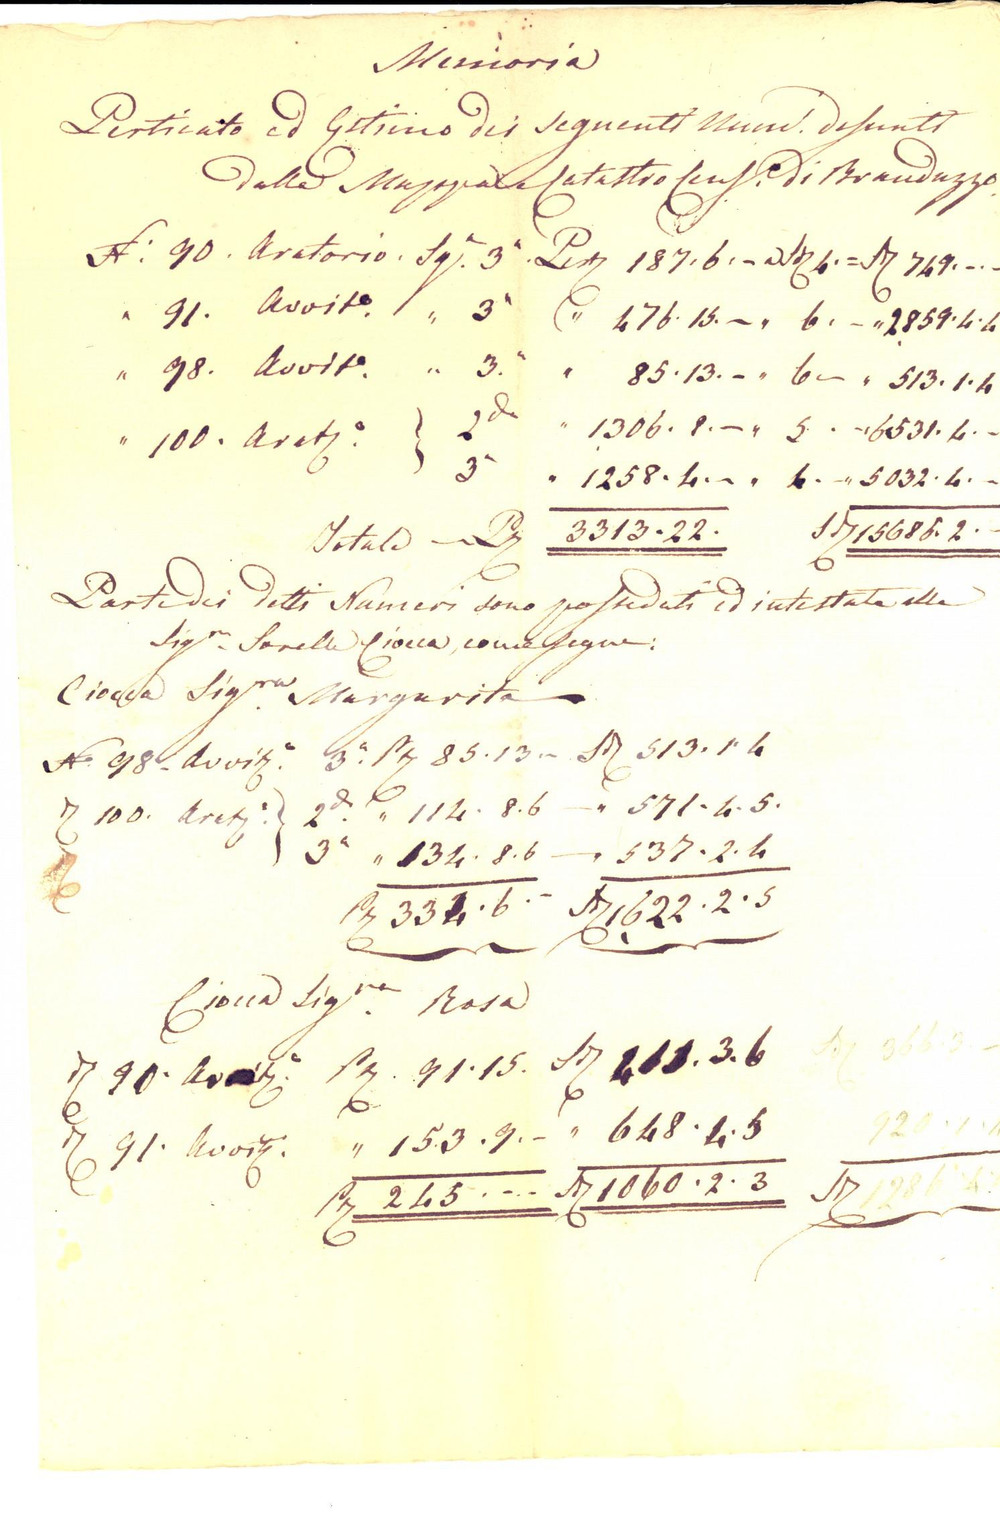 Memoria
Perticato ed Estimo dei seguenti Num.i desunti
dalla Mappa e Catastro Cens.o di Branduzzo
N.° 90. Aratorio. Sq.a 3.a Per.e 187.6.- a S.di 4.= S.di 749.-.-
" 91. Avvit.o. " 3.a " 476.15.- " 6.- " 2859.4.4
" 98. Avvit.o. " 3.a " 85.13.- " 6- " 513.1.4
" 100. Arat.o } 2.da " 1306.8.- " 5.- " 6531.4.-
3.a " 1258.4.- " 4.- " 5032.4.-
Totale - P.e 3313.22. S.di 15685.2.-
Parte dei detti Numeri sono posseduti ed intestati alle
Sig.re Sorelle Ciocca, come segue:
Ciocca Sig.ra Margarita
N.° 98. Avvit.o 3.a P.e 85.13- S.di 513.1.4
" 100. Arat.o } 2.da " 114.8.6 - " 571.4.5.
3.a " 134.8.6 - " 537.2.4
P.e 334.6.- S.di 1622.2.5
Ciocca Sig.ra Rosa
" 90. P.e 91.15. S.di 411.3.6 S.di 366.3.-
" 91. Avvit.o. " 153.9.- " 648.4.5 920.1.4
P.e 245.--- S.di 1060.2.3 S.di 1286.4